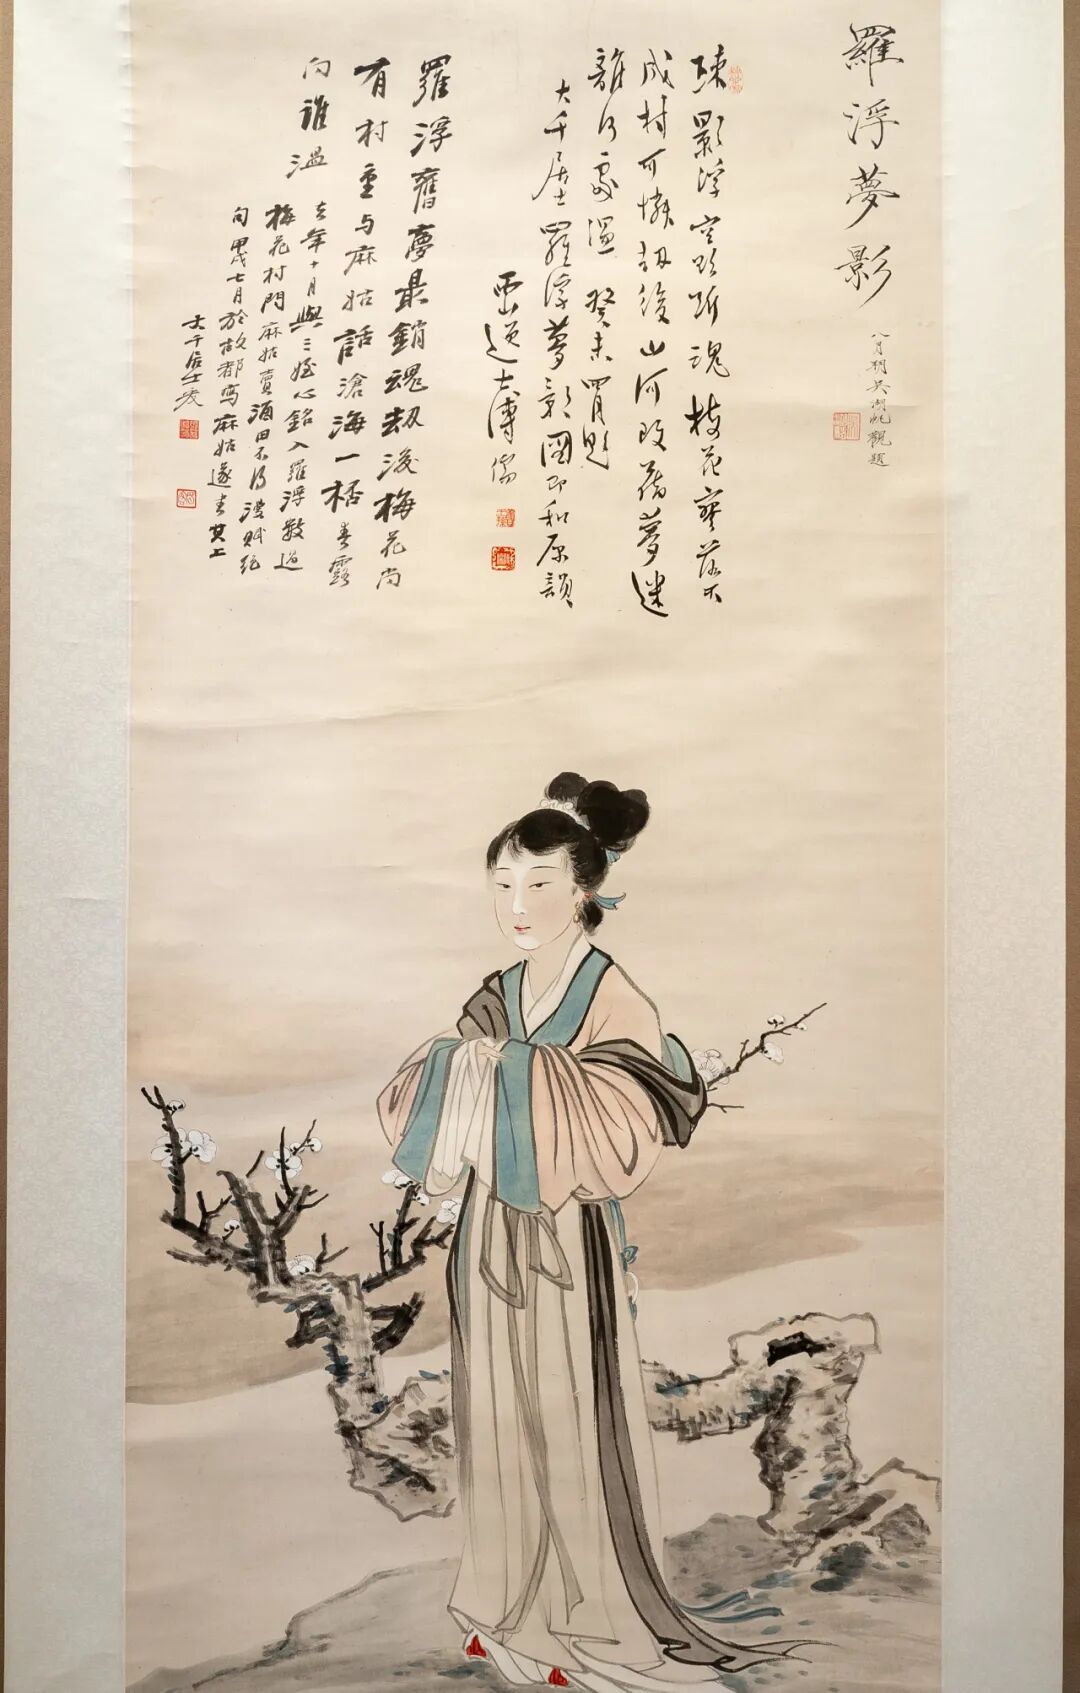 羅浮夢影
八月朔吳湖帆觀題
疎影浮空欲斷魂梅花寥落不
成村可憐劫後山河改舊夢迷
離何處溫 癸未買題
大千居士羅浮夢影圖即和原韻
西山逸士溥儒
羅浮舊夢最銷魂劫後梅花尚
有村重与麻姑話滄海一桮春露
向誰溫
去年十月與三姪心銘入羅浮數過
梅花村問麻姑賣酒田不得漫賦絕
句甲戌七月於故都寫麻姑遂書其上
大千居士爰